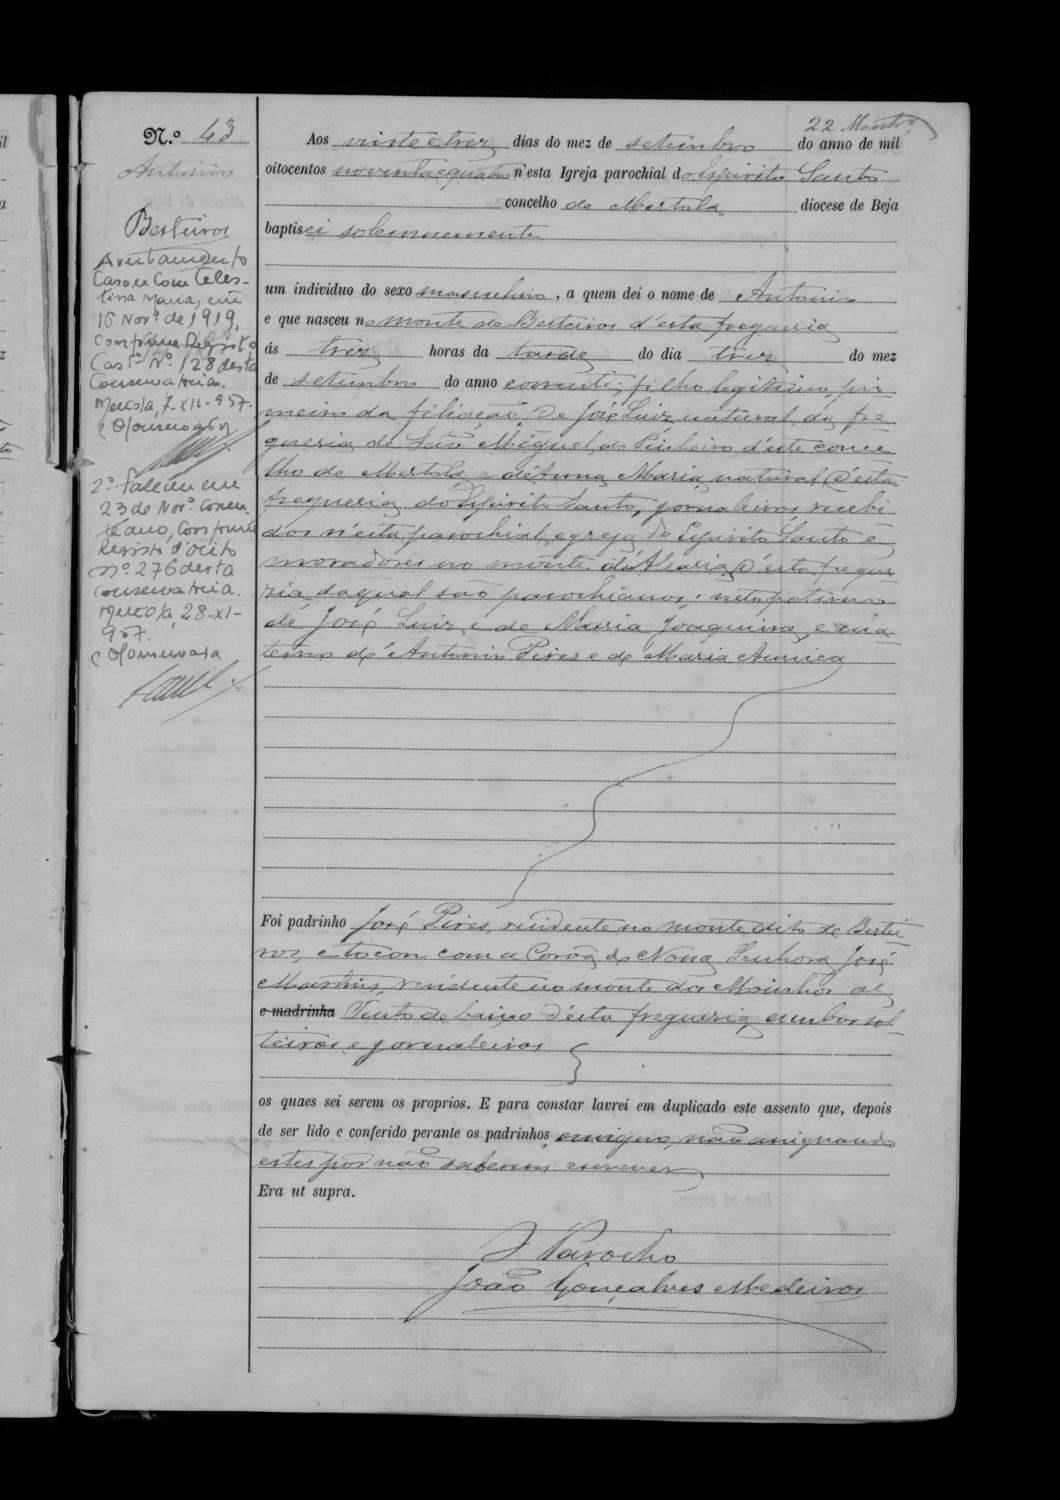 22 Montro
N.º 43
Antonio
Besteiros
Averbamento
Casou com Celes-
tina Maria, em
16 Novº de 1919,
conforme Registo
Castº Nº 128 desta
Conservatoria.
Mertola, 7-XII-957.
O Conservador
2º Faleceu em
23 de Novº corren
te ano, conforme
Registo d'obito
nº 276 desta
conservatoria.
Mertola, 28-XI-
957.
O Conservador
Aos vinte e trez dias do mez de setembro do anno de mil
oitocentos noventa e quatro n'esta Igreja parochial do Espirito Santo
concelho de Mertola diocese de Beja
baptisei solemnemente
um individuo do sexo masculino, a quem dei o nome de Antonio
e que nasceu no monte de Besteiros d'esta freguezia
ás trez horas da tarde do dia trez do mez
de setembro do anno corrente; filho legitimo, pri
meiro da filiação, de José Luiz, natural da fre
guezia de São Miguel do Pinheiro d'este conce
lho de Mertola e de Anna Maria, natural d'esta
freguezia do Espirito Santo, jornaleiros, recebi
dos n'esta parochial egreja do Espirito Santo e
moradores no monte d'Alcaria, d'esta fregue
zia, da qual são parochianos; neto paterno
de José Luiz e de Maria Joaquina, e ma
terno de Antonio Pires e de Maria Annica
Foi padrinho José Pires, residente no monte dito de Bestei
ros, e tocou com a Corôa de Nossa Senhora José
Martins, residente no monte dos Moinhos de
e madrinha Vento de baixo d'esta freguezia, ambos sol
teiros e jornaleiros
os quaes sei serem os proprios. E para constar lavrei em duplicado este assento que, depois
de ser lido e conferido perante os padrinhos, assigno, não assignando
estes por não saberem escrever
Era ut supra.
O Parocho
João Gonçalves Medeiros